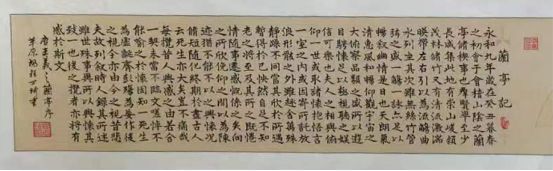 蘭亭記
永和九年歲在癸丑暮春
之初會于會稽山陰之蘭
亭脩稧事也群賢畢至少
長咸集此地有崇山峻領
茂林脩竹又有清流激湍
暎帶左右引以為流觴曲
水列坐其次雖無絲竹管
弦之盛一觴一詠亦足以
暢敘幽情是日也天朗氣
清惠風和暢仰觀宇宙之
大俯察品類之盛所以遊
目騁懷足以極視聽之娛
信可樂也夫人之相與俯
仰一世或取諸懷抱悟言
一室之內或因寄所託放
浪形骸之外雖趣舍萬殊
靜躁不同當其欣於所遇
暫得於己快然自足不知
老之將至及其所之既惓
情隨事遷感慨係之矣向
之所欣俛仰之間以為陳
迹猶不能不以之興懷況
脩短隨化終期於盡古人
云死生亦大矣豈不痛哉
每攬昔人興感之由若合
一契未嘗不臨文嗟悼不
能喻之於懷固知一死生
為虛誕齊彭殤為妄作後
之視今亦由今之視昔悲
夫故列敘時人錄其所述
雖世殊事異所以興懷其
致一也後之攬者亦將有
感於斯文
王羲之蘭亭序